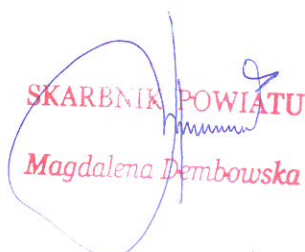 SKARBNIK POWIATU
Magdalena Dembowska